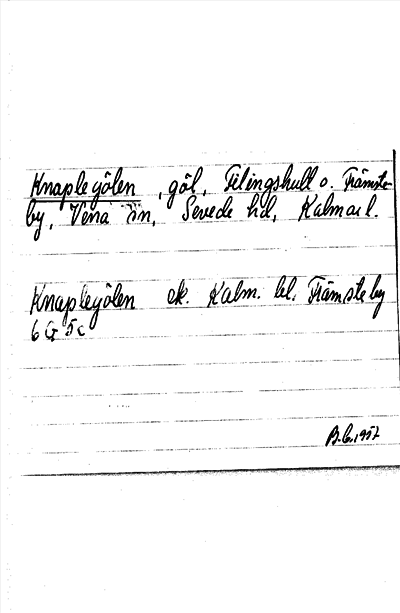 Knaplegölen, göl, Tilingshult o. Främste-
by, Vena sn, Sevede hd, Kalmar l.
Knaplegölen ek. Kalm. bl. Främsteby
6 G 5 c
B.G. 1957